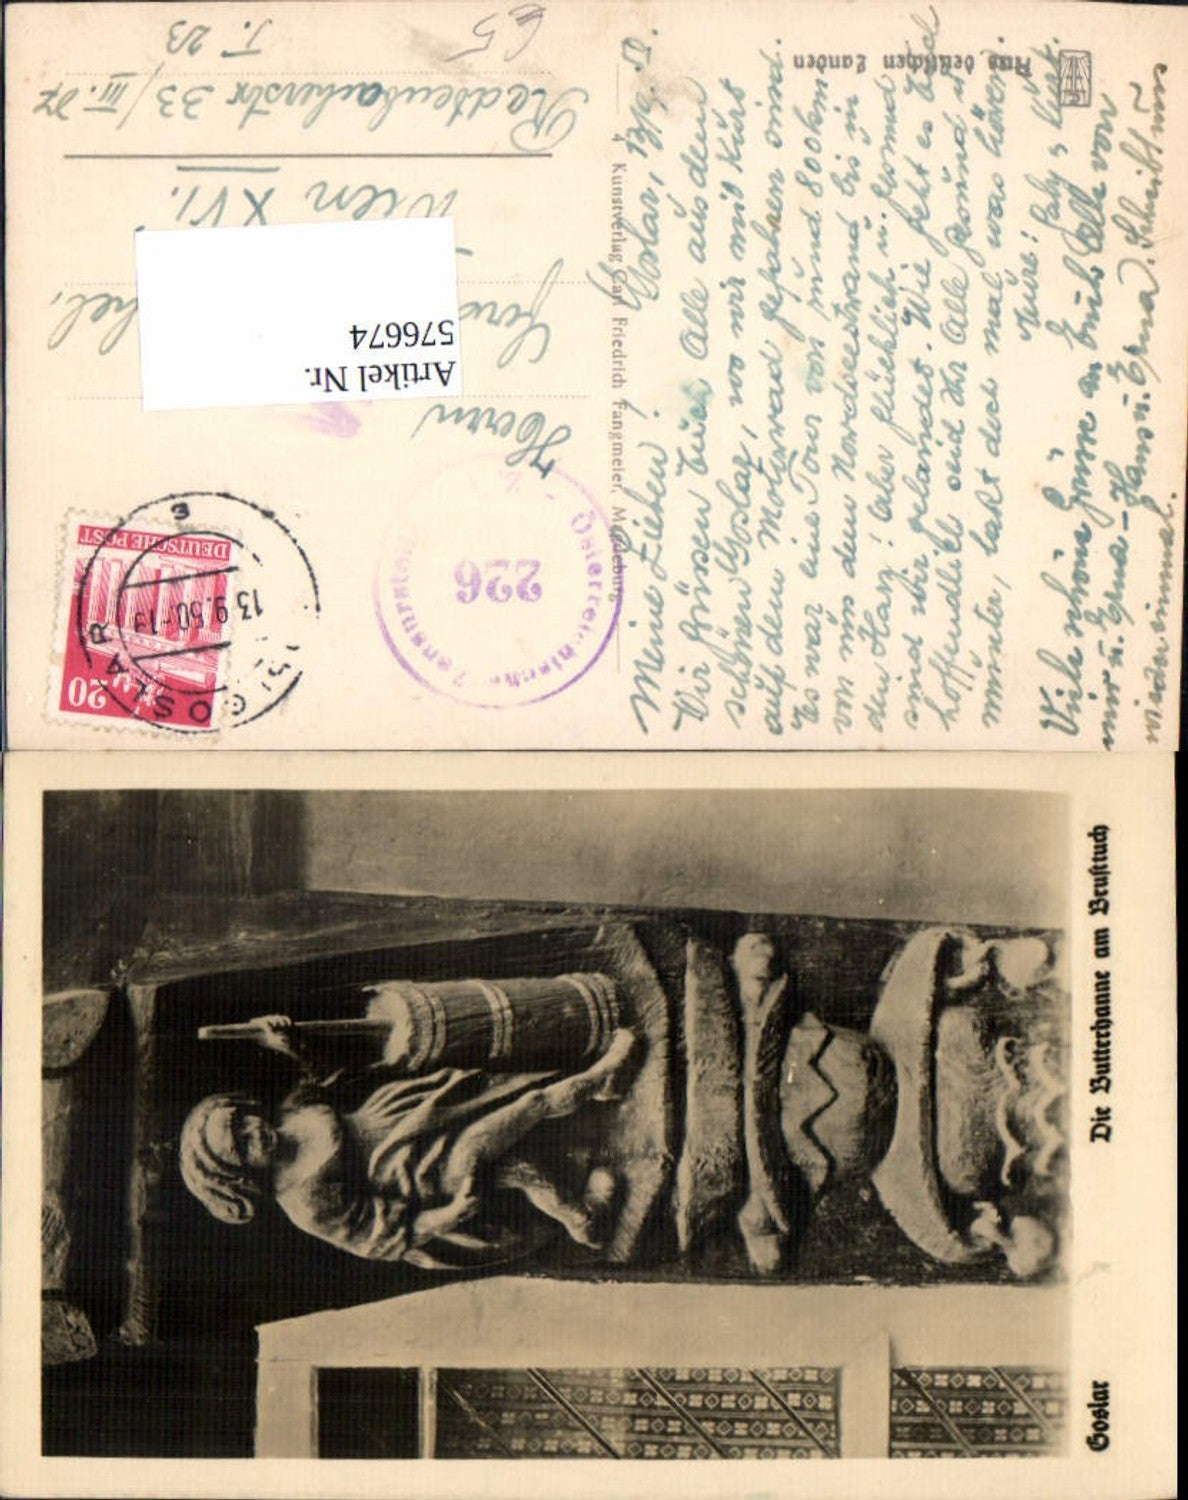 Goslar, 13/9. 50.
Meine Lieben!
Wir Grüssen Euch Alle aus dem
schönen Goslar, wo wir mit Kurt
auf dem Motorrad gefahren sind.
Es war eine Tour von rund 800 km
von uns dem Nordseestrand bis in
den Harz! Aber glücklich u. gesund
sind wir gelandet. Wie geht es Euch
hoffendlich seid Ihr Alle gesund u.
munter, lasst doch mal was hören.
Eure: u. Kurt.
Viele schöne Grüsse an Euch Alle von
mir u. Erna - Hans u. Erna. Schreibt uns
wieder einmal.
Aus deutschen Landen
4 Kunstverlag Carl Friedrich Fangmeier, Magdeburg
Herrn
Wien XVI.
Redtenbacherstr 33/III.
T. 23
65
Artikel Nr.
576674
DEUTSCHE POST
20
GOSLAR
13.9.50
Österreichische Zensurstelle
226
Goslar
Die Butterhanne am Brusttuch